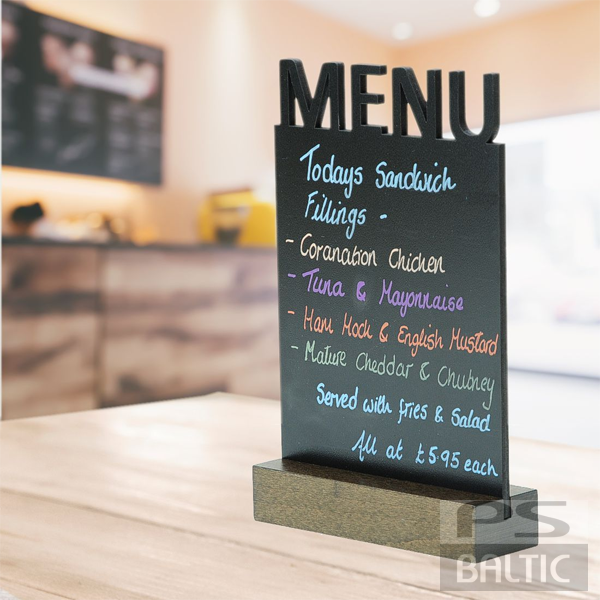 MENU
Todays Sandwich
Fillings -
- Coranation Chicken
- Tuna & Mayonnaise
- Ham Hock & English Mustard
- Mature Cheddar & Chutney
Served with fries & Salad
All at £5.95 each
PS
BALTIC